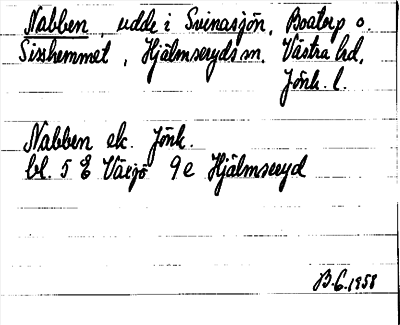 Nabben, udde i Svinasjön, Boatorp o.
Sisshemmet, Hjälmseryds sn. Västra hd,
Jönk. l.
Nabben ek. Jönk.
bl. 5 E Växjö 9e Hjälmseryd
B.G. 1958